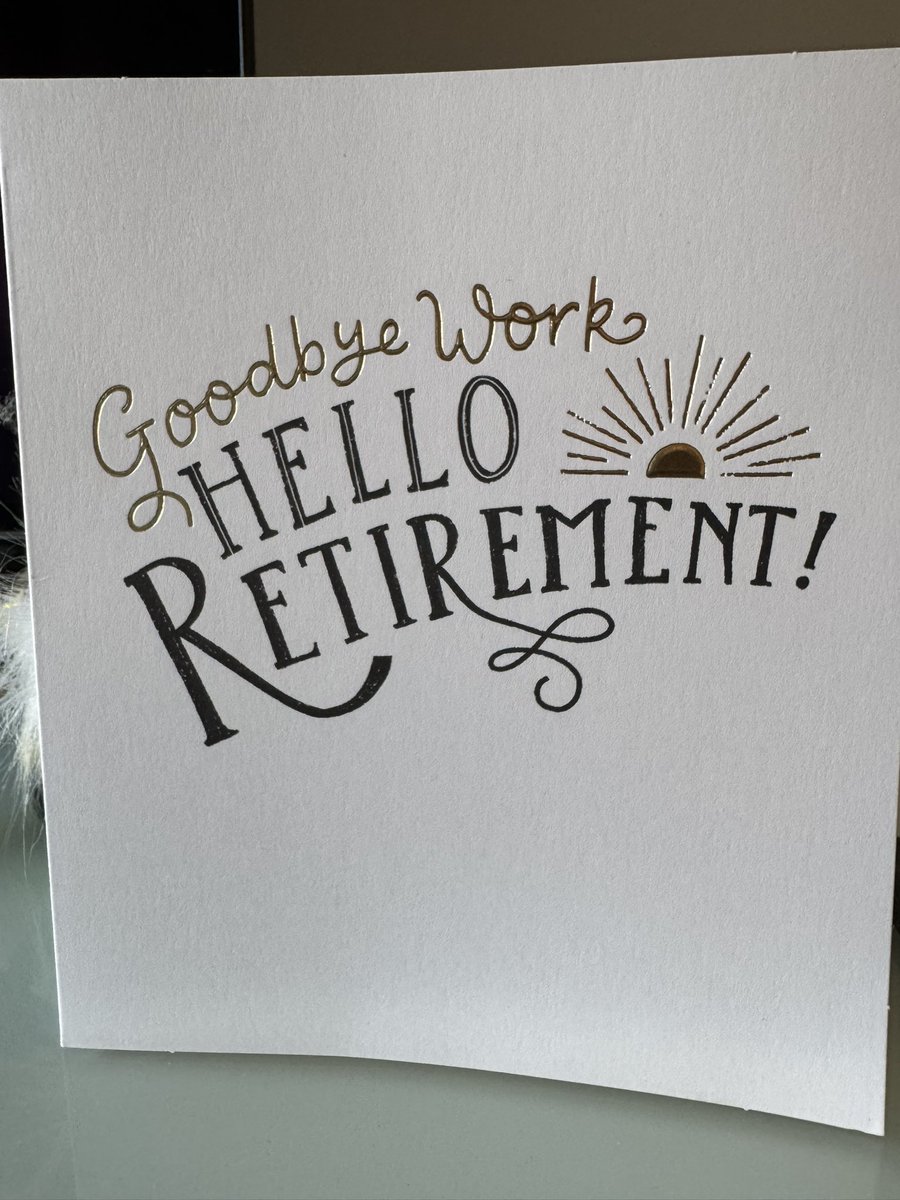 Goodbye Work
HELLO
RETIREMENT!